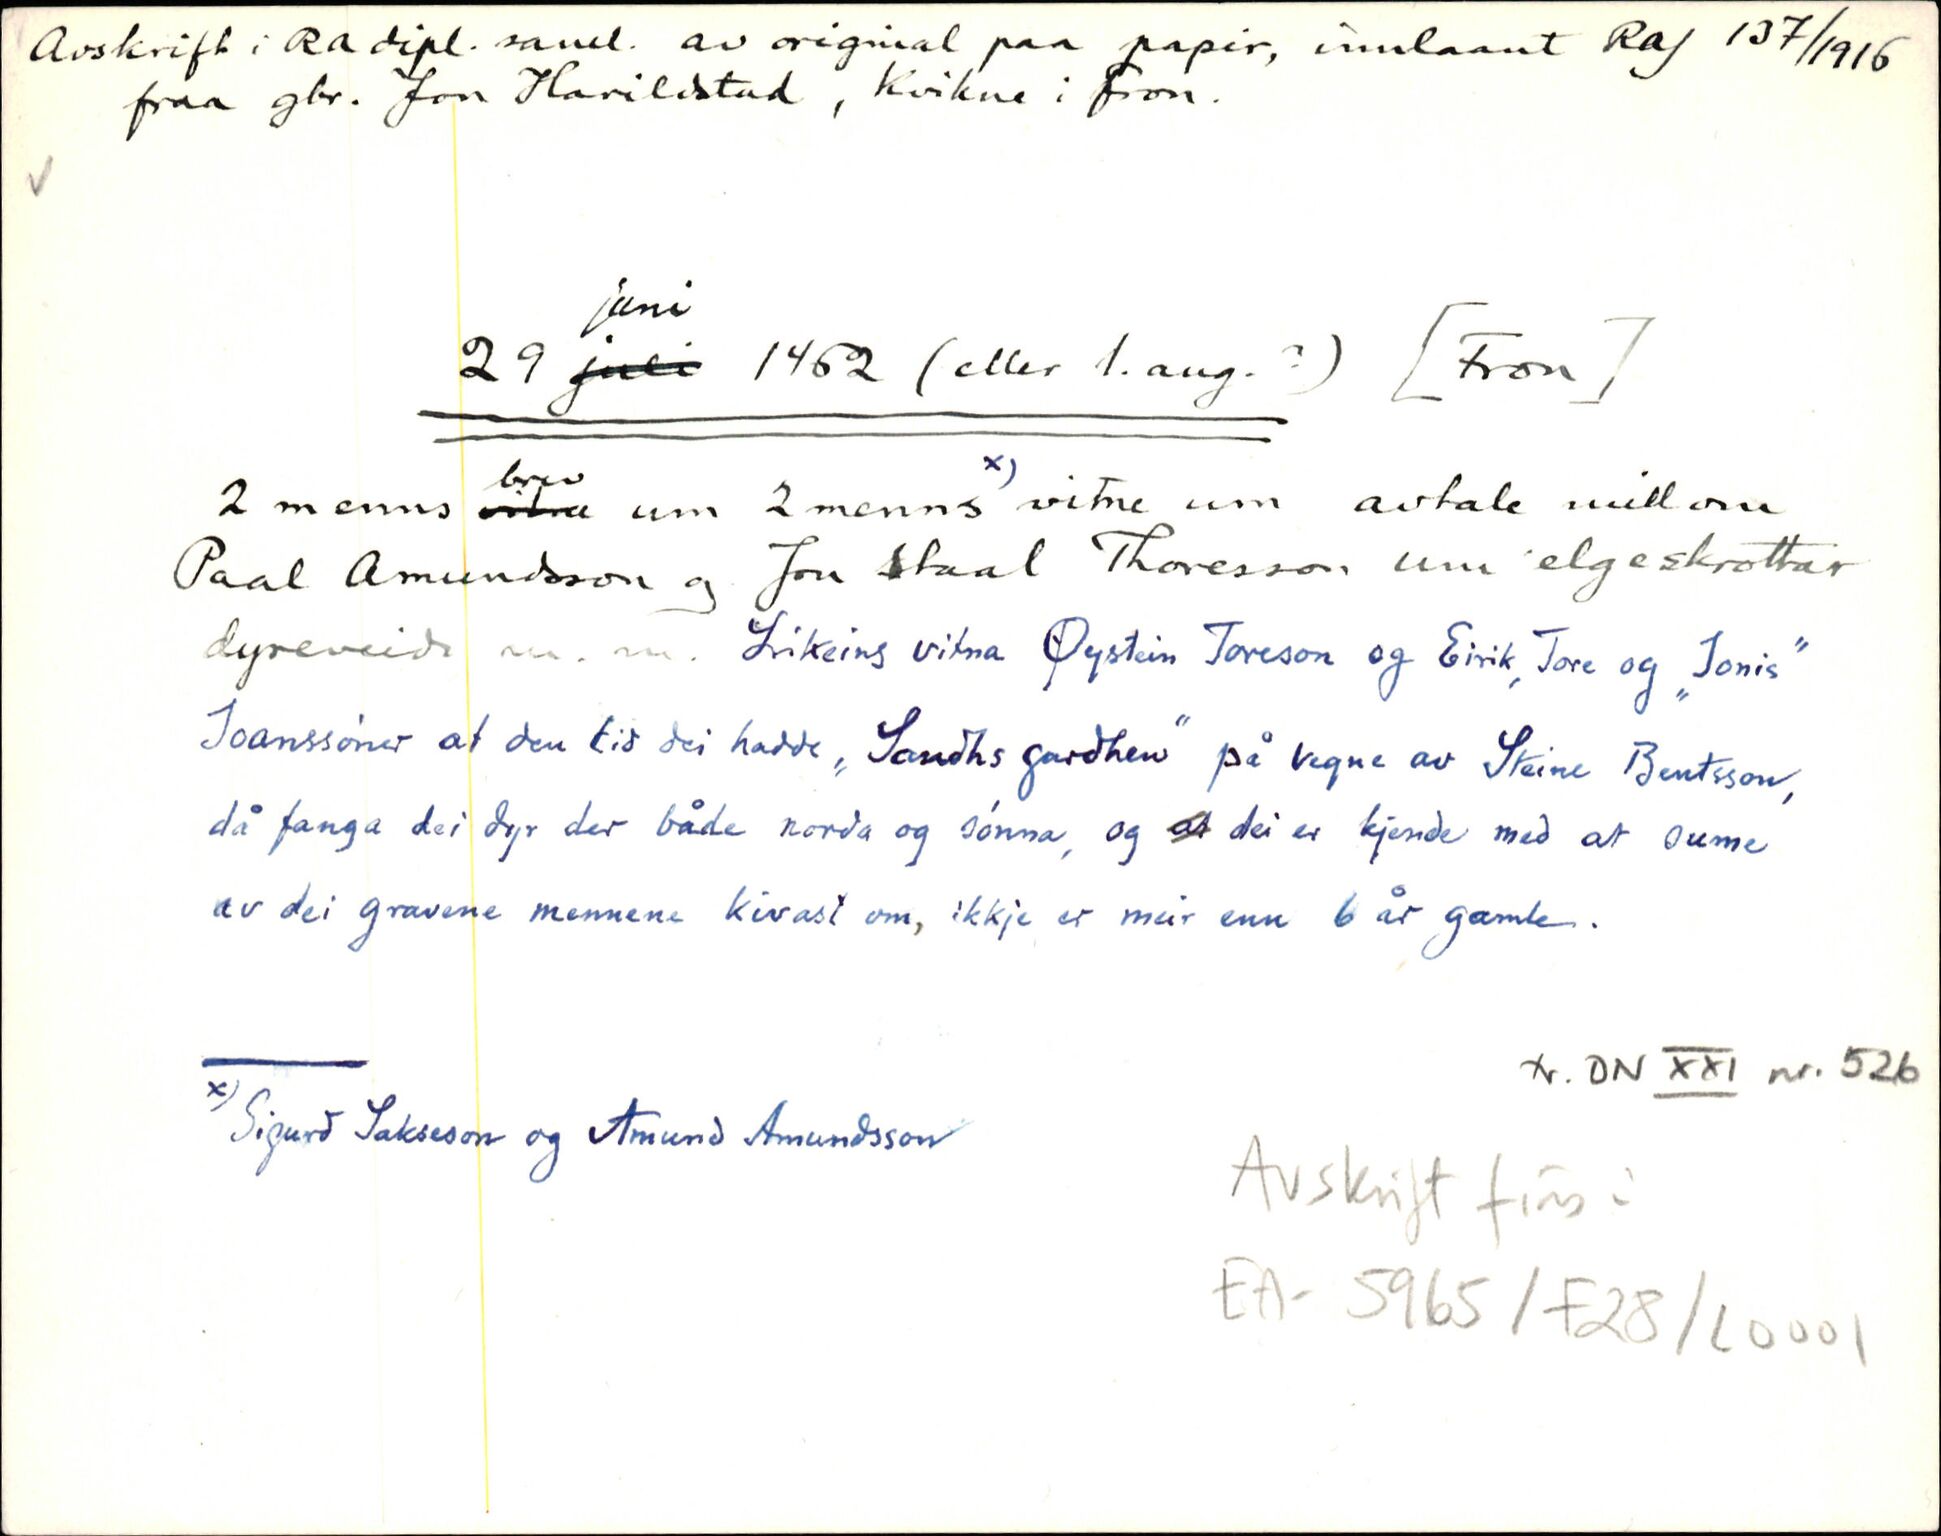 Avskrift i RA dipl. saml. av original paa papir, innlaant RAJ 137/1916
fraa gbr. Jon Harildstad, Kvikne i Fron.
juni
29 juli 1462 (eller 1. aug.?) [Fron]
brev x)
2 menns vitne um 2 menns vitne um avtale millom
Paal Amundsson og Jon Staal Thoresson um elgeskrottar
dyreveide m. m. Likeins vitna Øystein Toreson og Eirik, Tore og „Jonis"
Joanssøner at den tid dei hadde „Sandhs gardhen" på vegne av Steine Bentsson,
då fanga dei dyr der både norda og sønna, og at dei er kjende med at sume
av dei gravene mennene kivast om, ikkje er meir enn 6 år gamle.
tr. DN XXI nr. 526
x) Sigurd Sakseson og Amund Amundsson
Avskrift fins i
EA-5965/F28/L0001